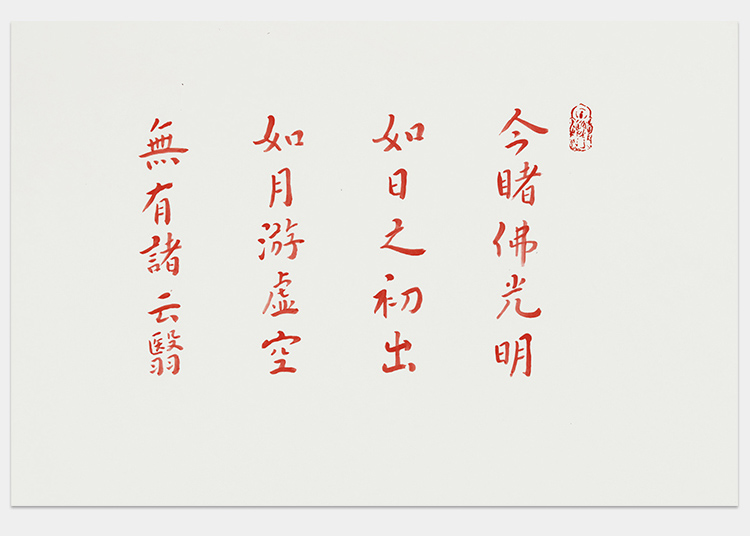 今睹佛光明
如日之初出
如月游虚空
無有諸云翳